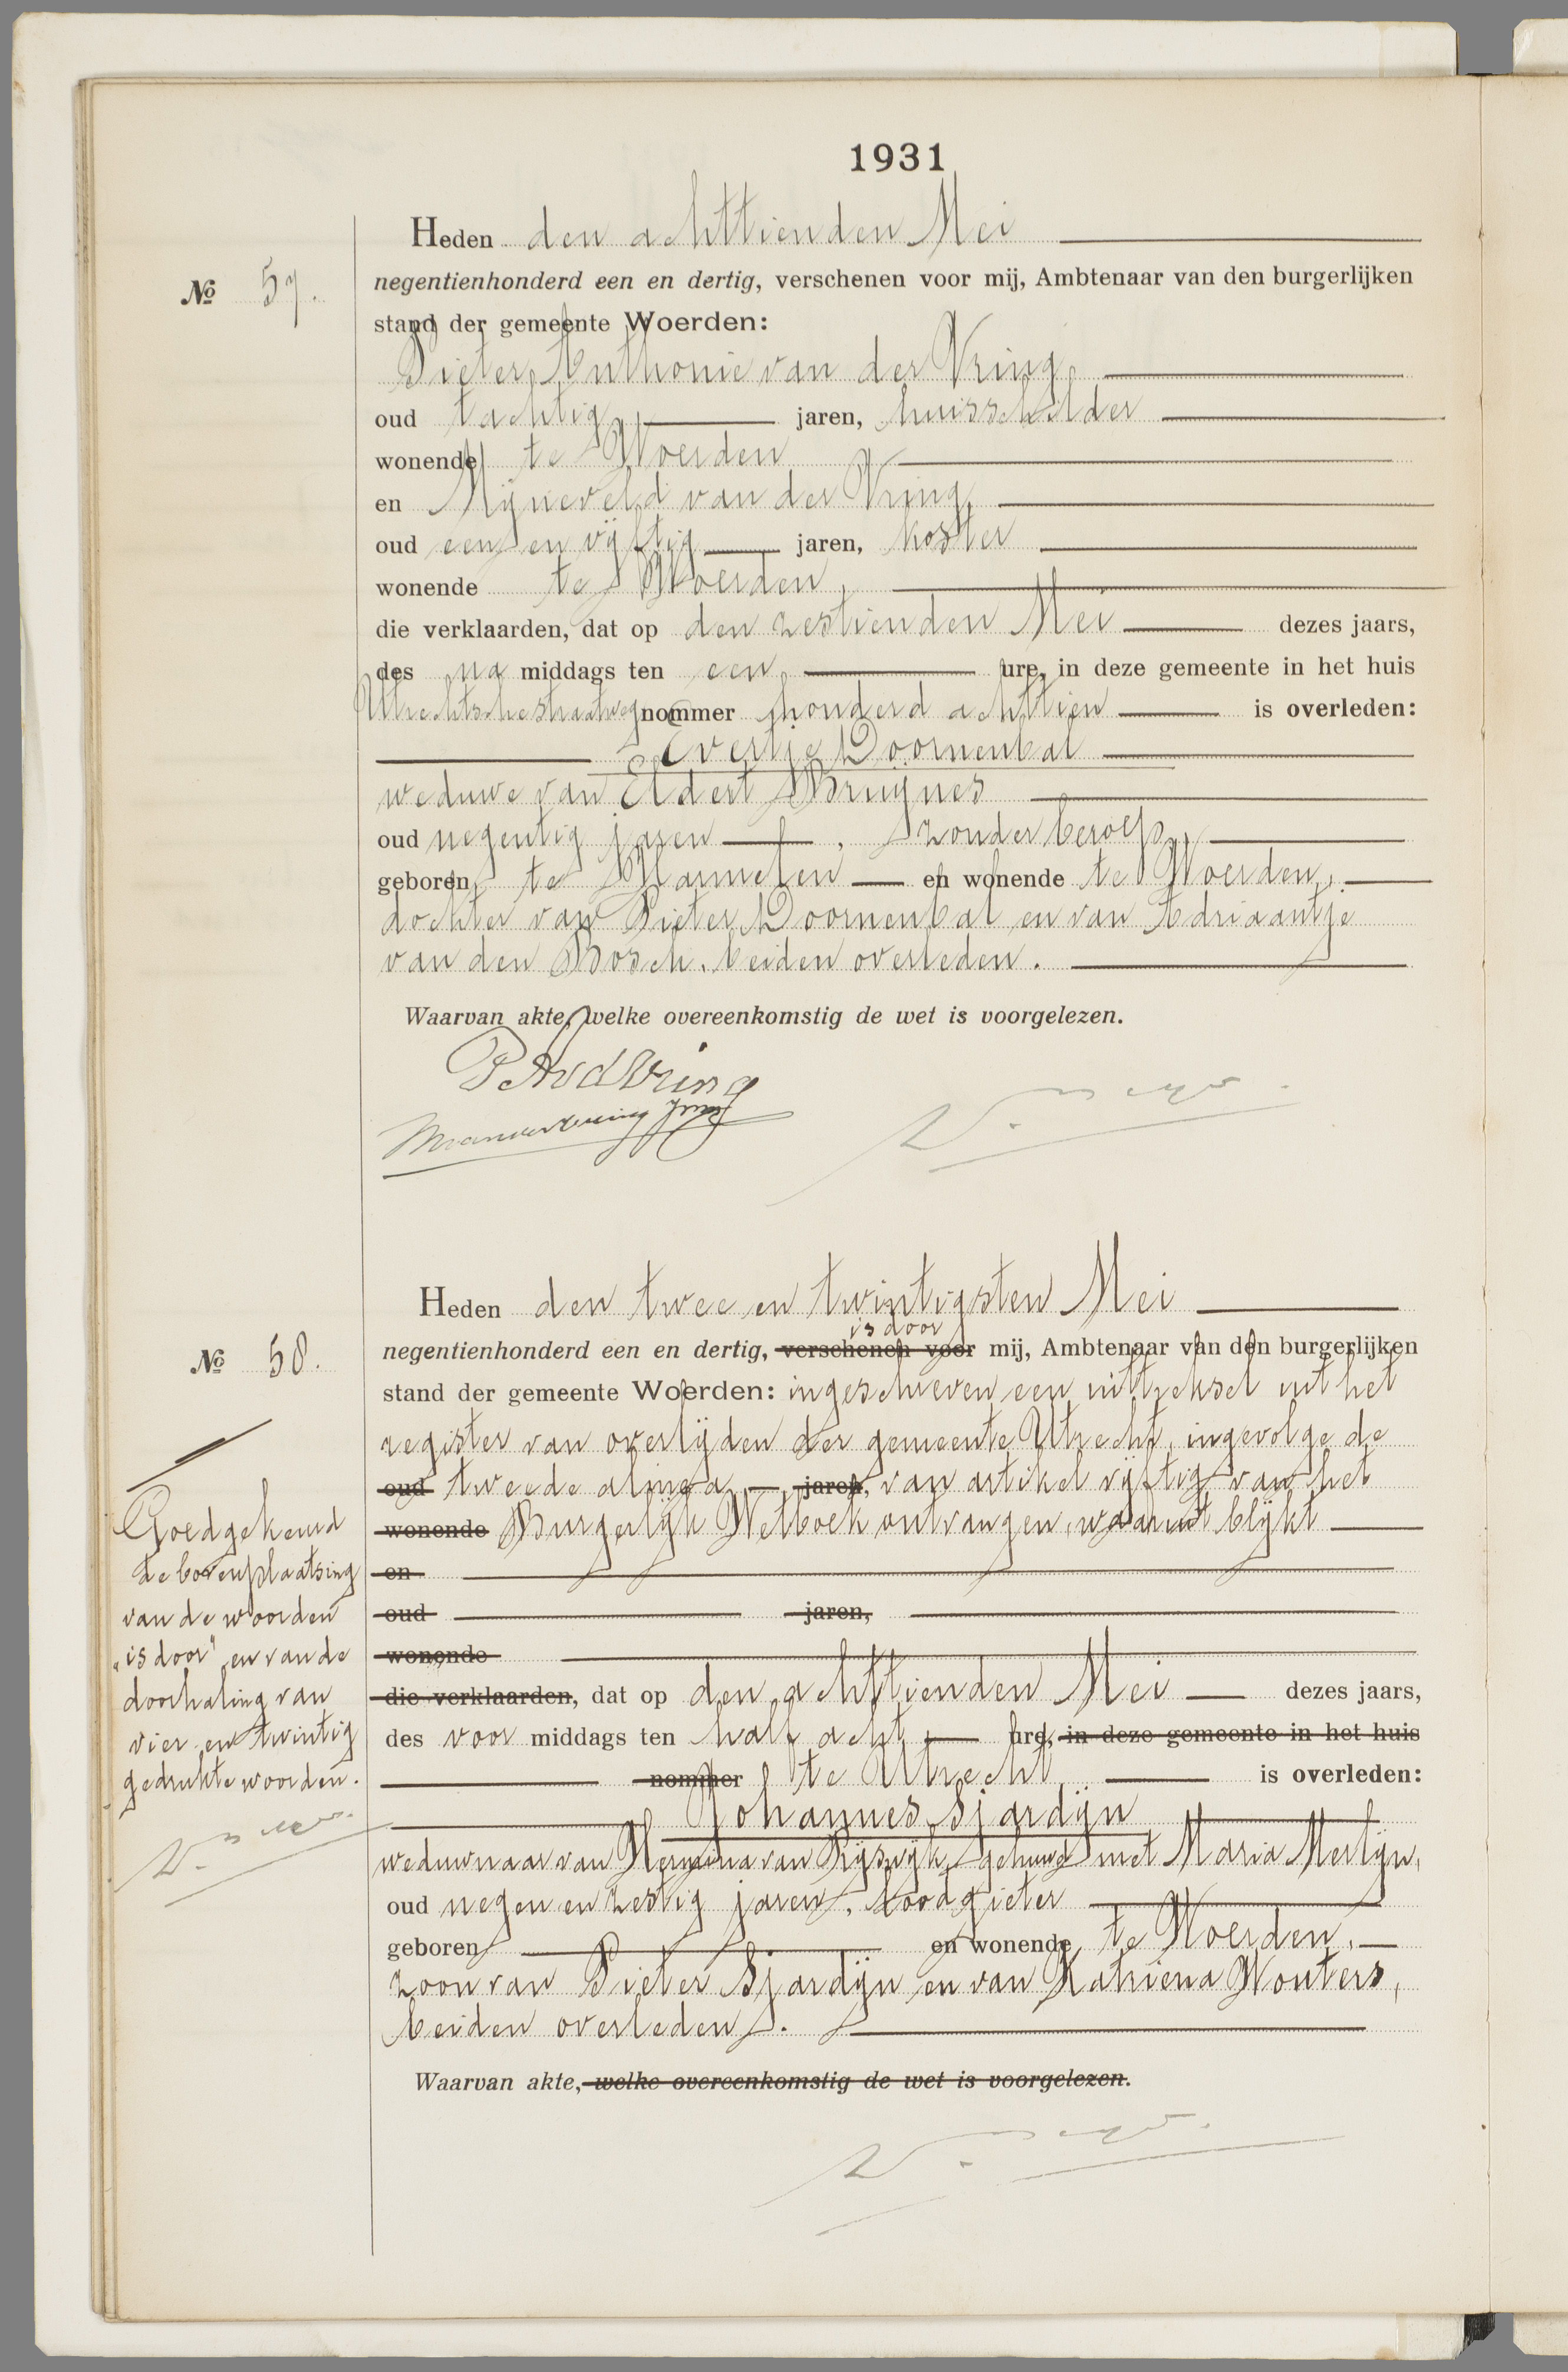 1931
Heden den achttienden Mei
№ 57.
negentienhonderd een en dertig, verschenen voor mij, Ambtenaar van den burgerlijken
stand der gemeente Woerden:
Pieter Anthonie van der Vring,
oud tachtig jaren, huisschilder
wonende te Woerden
en Mijneveld van der Vring,
oud een en vijftig jaren, koster
wonende te Woerden,
die verklaarden, dat op den zestienden Mei dezes jaars,
des na middags ten een ure, in deze gemeente in het huis
Utrechtschestraatweg nommer honderd achttien is overleden:
Evertje Doornenbal
weduwe van Eldert Bruijnes
oud negentig jaren, zonder beroep,
geboren te Harmelen en wonende te Woerden,
dochter van Pieter Doornenbal en van Adriaantje
van den Bosch, beiden overleden.
Waarvan akte, welke overeenkomstig de wet is voorgelezen.
P A v d Vring
Heden den twee en twintigsten Mei
is door
№ 58.
negentienhonderd een en dertig, verschenen voor mij, Ambtenaar van den burgerlijken
stand der gemeente Woerden: ingeschreven een uittreksel uit het
register van overlijden der gemeente Utrecht, ingevolge de
oud tweede alinea jaren, van artikel vijftig van het
wonende Burgerlijk Wetboek ontvangen, waaruit blijkt
en
oud jaren,
wonende
die verklaarden, dat op den achttienden Mei dezes jaars,
des voor middags ten half acht ure, in deze gemeente in het huis
nommer te Utrecht is overleden:
Johannes Sjardijn
weduwnaar van Hermina van Rijswijk, gehuwd met Maria Merlijn,
oud negen en zestig jaren, loodgieter
geboren en wonende te Woerden,
zoon van Pieter Sjardijn en van Katriena Wouters,
beiden overleden.
Waarvan akte, welke overeenkomstig de wet is voorgelezen.
Goedgekeurd
de bovenplaatsing
van de woorden
"is door" en van de
doorhaling van
vier en twintig
gedrukte woorden.